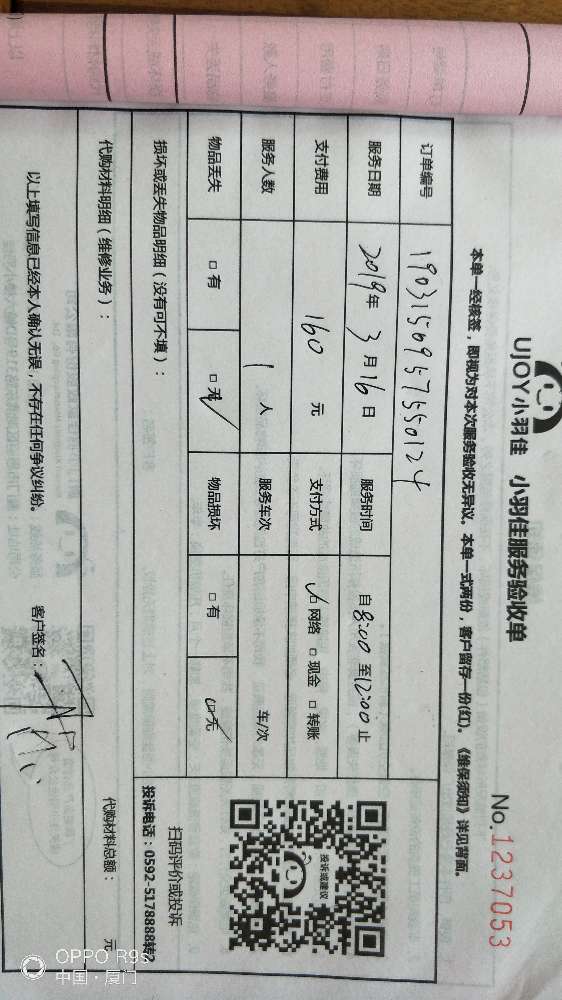 UJOY小羽佳 小羽佳服务验收单
No.1237053
本单一经核签，即视为对本次服务验收无异议。本单一式两份，客户留存一份(红)。《维保须知》详见背面。
订单编号 1903156957550124
服务日期 2019年 3月16日 服务时间 自8:00至12:00止
支付费用 160 元 支付方式 ☑网络 □现金 □转账
服务人数 1 人 服务车次 车/次
物品丢失 □有 ☑无 物品损坏 □有 ☑无
损坏或丢失物品明细（没有可不填）：
投诉或建议
扫码评价或投诉
投诉电话：0592-5178888转2
代购材料明细（维修业务）：
代购材料总额： 元
以上填写信息已经本人确认无误，不存在任何争议纠纷。
客户签名：
OPPO R9s
中国·厦门